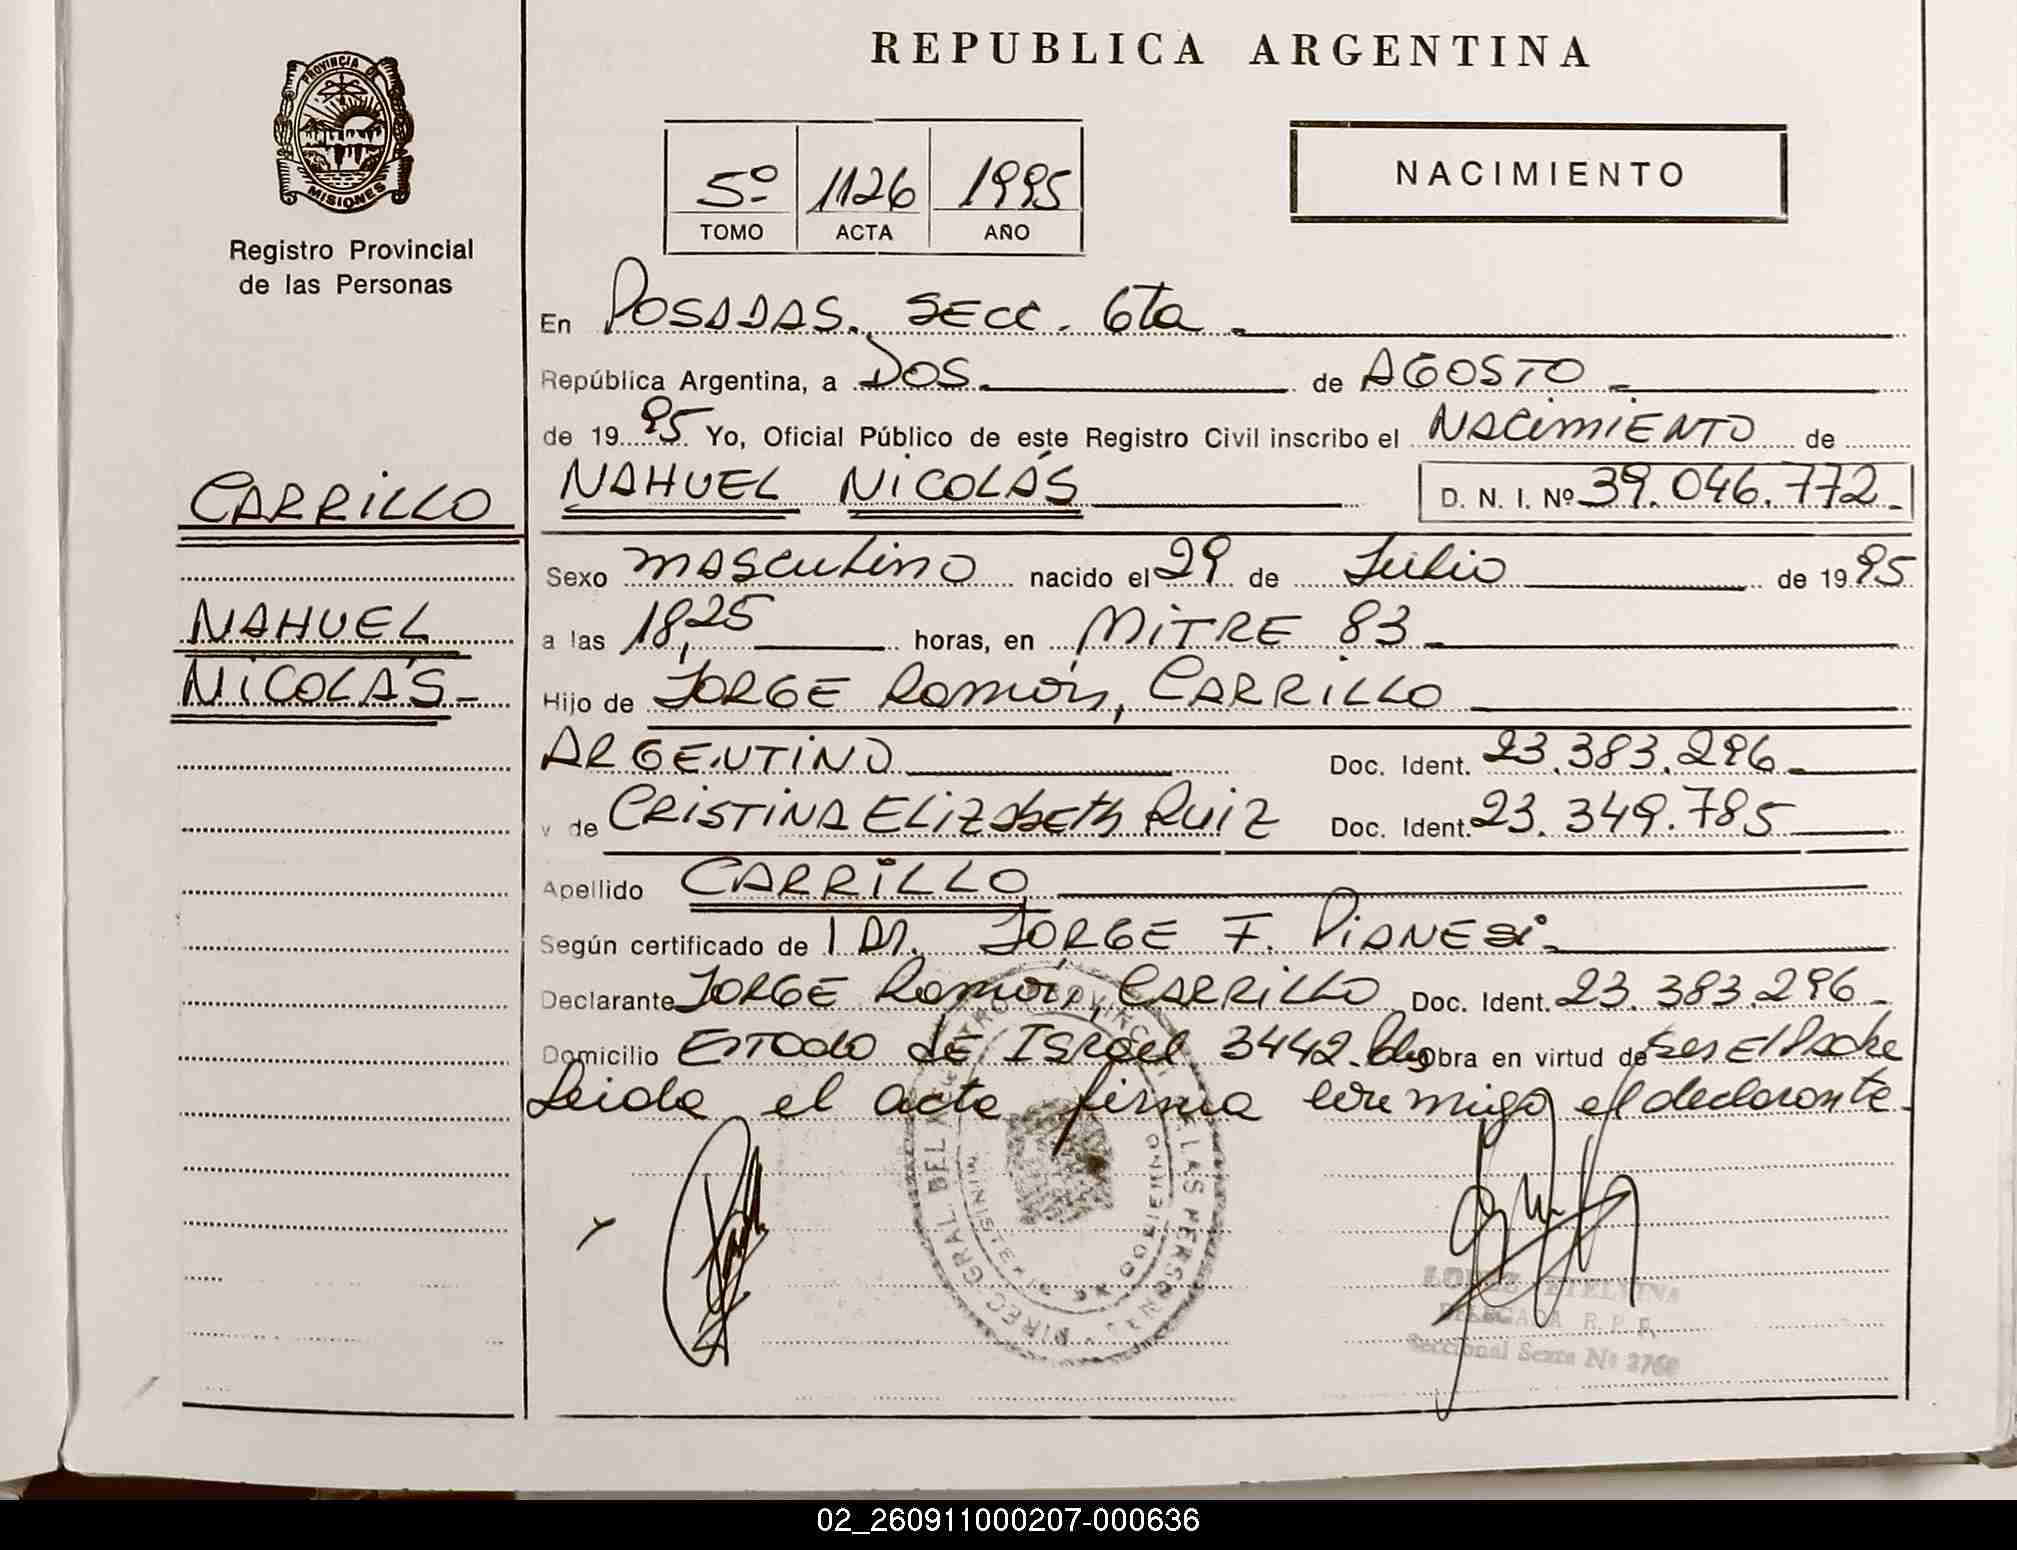 REPUBLICA ARGENTINA
PROVINCIA DE
MISIONES
Registro Provincial
de las Personas
5º 1126 1995
TOMO ACTA AÑO
NACIMIENTO
En POSADAS. SECC. 6ta.
República Argentina, a DOS de AGOSTO
de 1995 Yo, Oficial Público de este Registro Civil inscribo el NACIMIENTO de
CARRILLO
NAHUEL NICOLÁS D. N. I. Nº 39.046.772
Sexo masculino nacido el 29 de Julio de 1995
NAHUEL
a las 18,25 horas, en MITRE 83
NICOLÁS
Hijo de JORGE Ramón, CARRILLO
ARGENTINO Doc. Ident. 23.383.296
y de CRISTINA ELIZABETH RUIZ Doc. Ident. 23.349.785
Apellido CARRILLO
Según certificado de 1 Dr. JORGE F. PIANESI
Declarante JORGE Ramón, CARRILLO Doc. Ident. 23.383.296
Domicilio ESTADO DE ISRAEL 3442. Obra en virtud de Ser El Padre
Leída el acta firma conmigo el declarante.
DIREC. GRAL. DEL REGISTRO PROVINCIAL DE LAS PERSONAS
GOBIERNO
LOPEZ ETELVINA
DELEGADA R. P. P.
Seccional Sexta Nº 2760
02_260911000207-000636